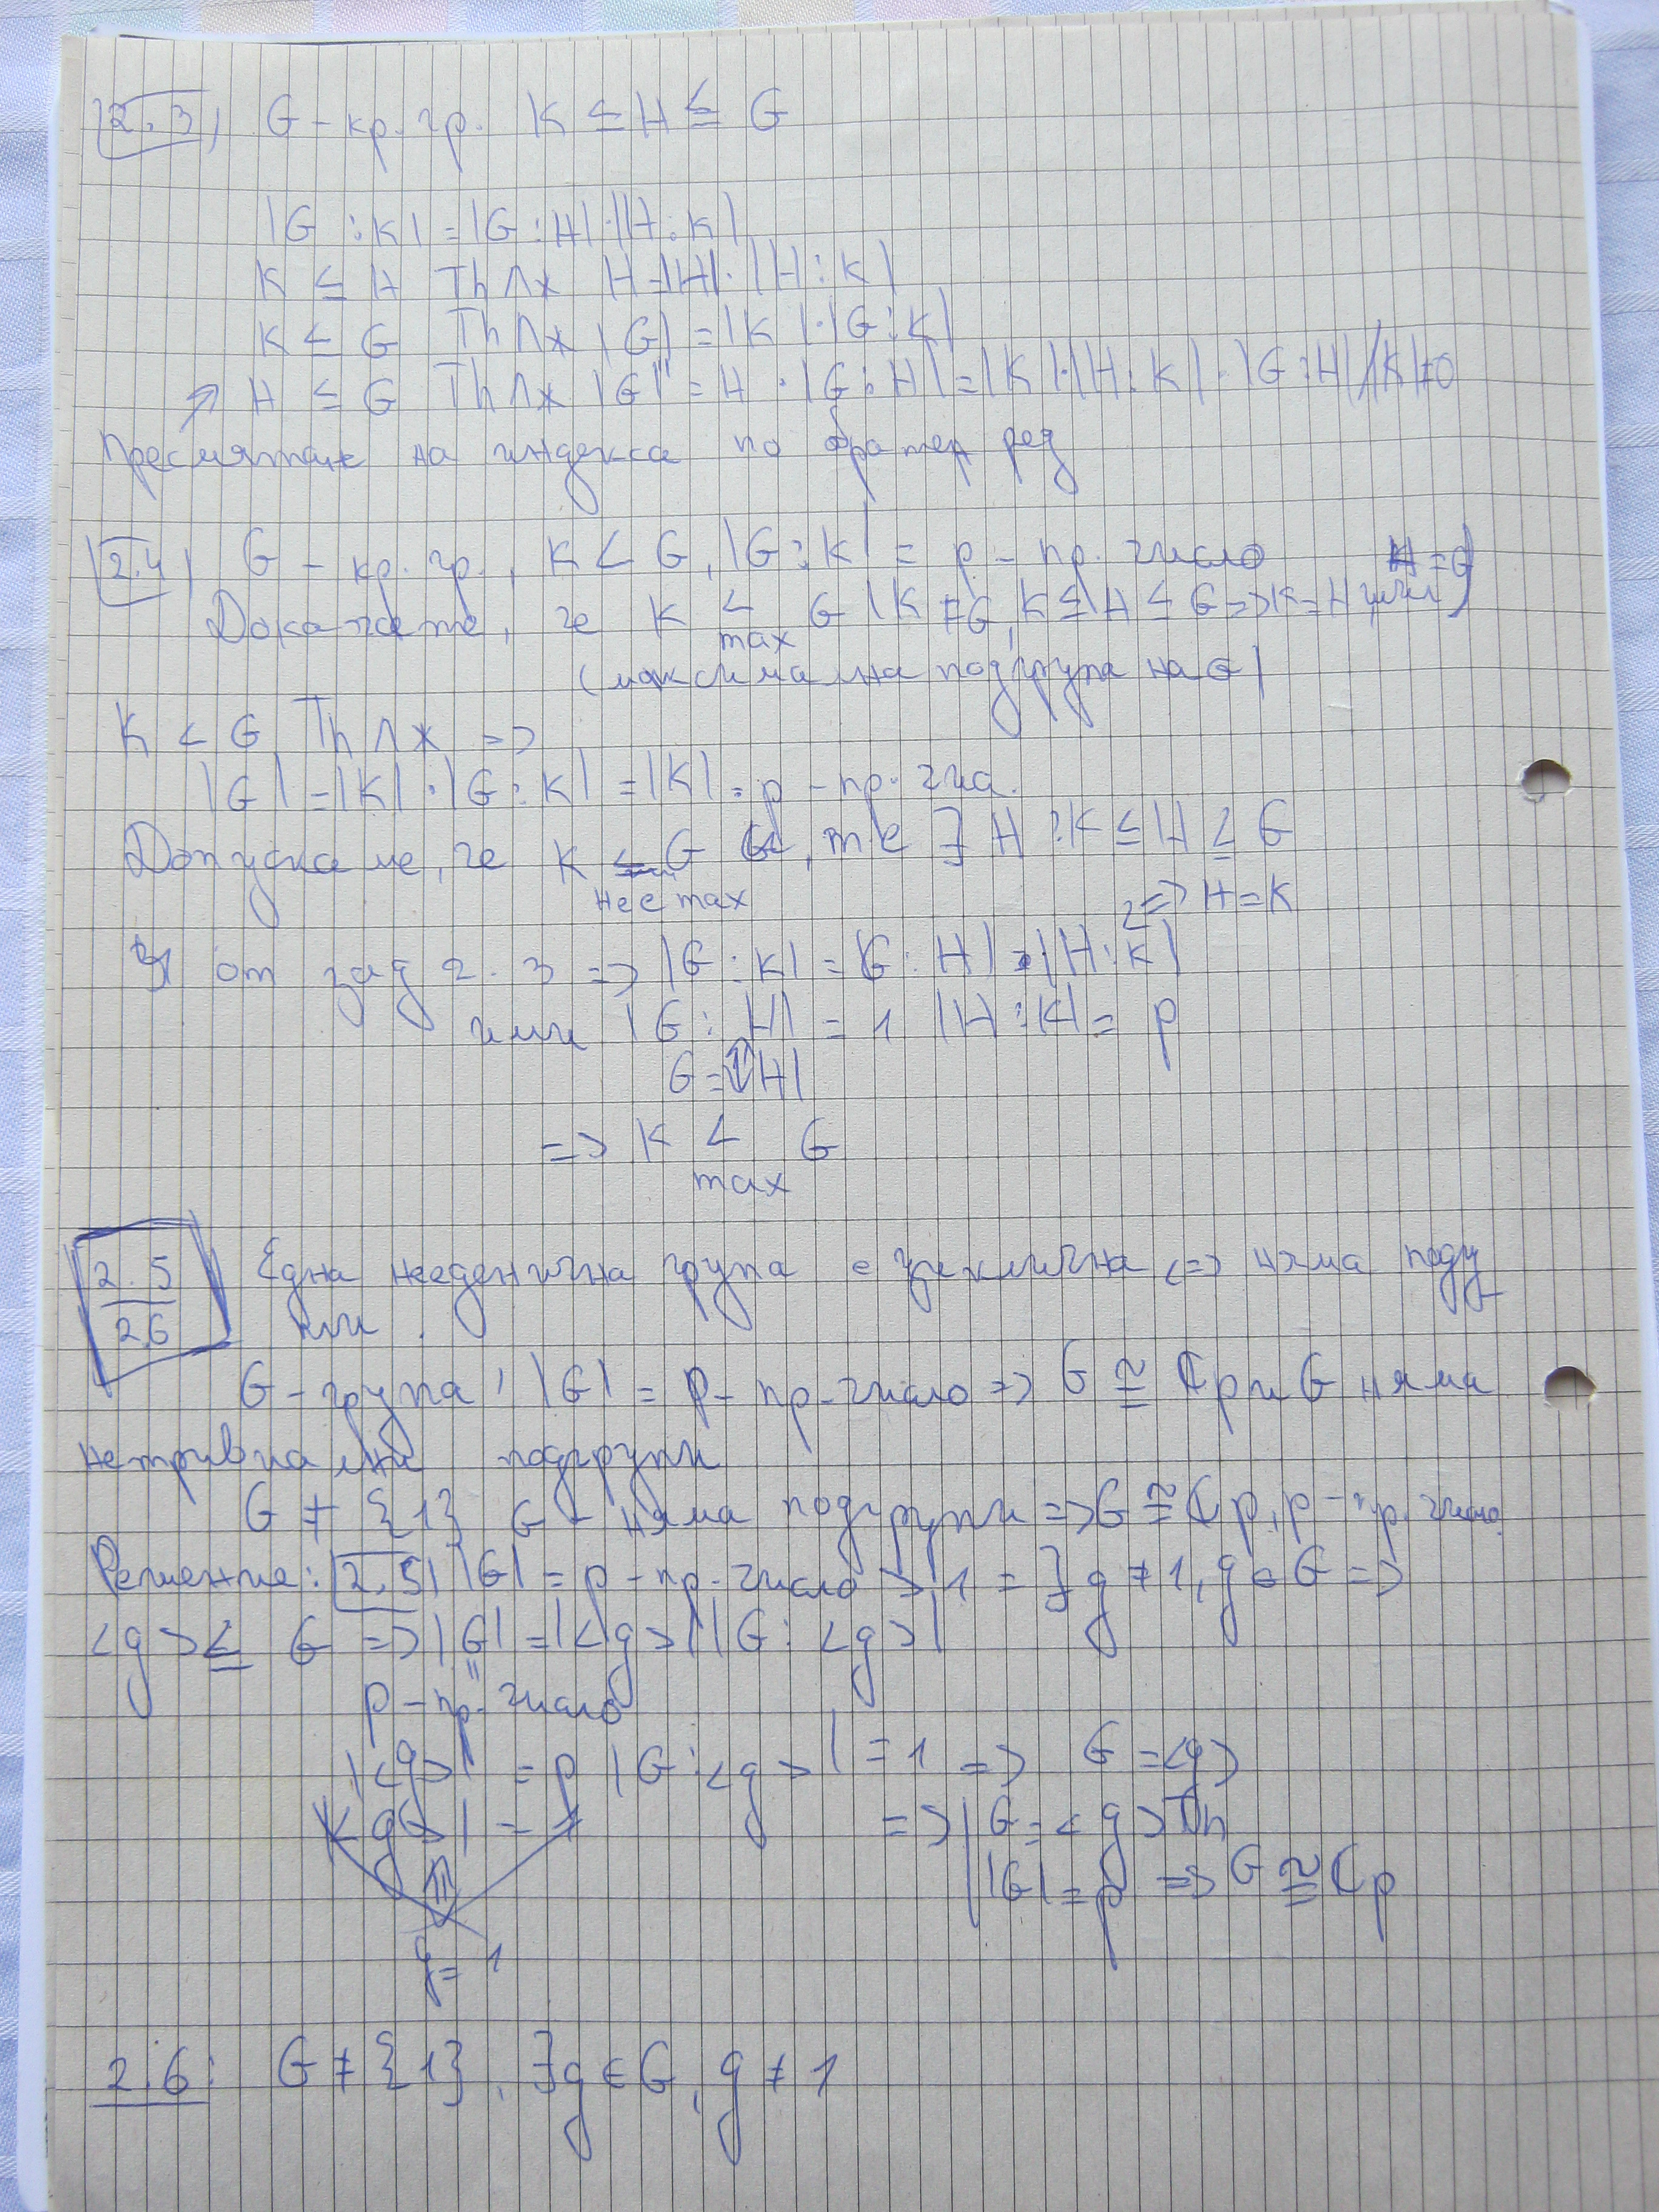 2.3) G - кр. гр. K ≤ H ≤ G
|G : K| = |G : H| · |H : K|
K ≤ H Th Лж H = |H| · |H : K|
K ≤ G Th Лж |G| = |K| · |G : K|
↗ H ≤ G Th Лж |G| = H · |G : H| = |K| · |H : K| · |G : H| / |K| ≠ 0
Пресмятане на индекса по обратен ред
2.4) G - кр. гр., K < G, |G : K| = p - пр. число
Докажете, че K < max G (K ≠ G, K ≤ H ≤ G => K = H или H = G)
(максимална подгрупа на G)
K < G, Th Лж =>
|G| = |K| · |G : K| = |K| · p - пр. чис.
Допускаме, че K ≤ G, т.е ∃ H : K ≤ H ≤ G
не е max
=> H = K
от зад 2.3 => |G : K| = |G : H| · |H : K|
или |G : H| = 1 |H : K| = p
⇕
G = |H|
=> K < max G
2.5
2.6
Една неединична група е циклична <=> няма подгру
пи.
G - група, |G| = p - пр. число => G ≅ ℂp и G няма
нетривиални подгрупи
G ≠ {1} G - няма подгрупи => G ≅ ℂp, p - пр. число.
Решение: 2.5) |G| = p - пр. число > 1 = ∃ g ≠ 1, g ∈ G =>
<g> ≤ G => |G| = |<g>| |G : <g>|
"
p - пр. число
|<g>| = p |G : <g>| = 1 => G = <g>
|<g>| = 1 => | G = <g> Th
⇕ | |G| = p => G ≅ ℂp
g = 1
2.6: G ≠ {1}, ∃ g ∈ G, g ≠ 1